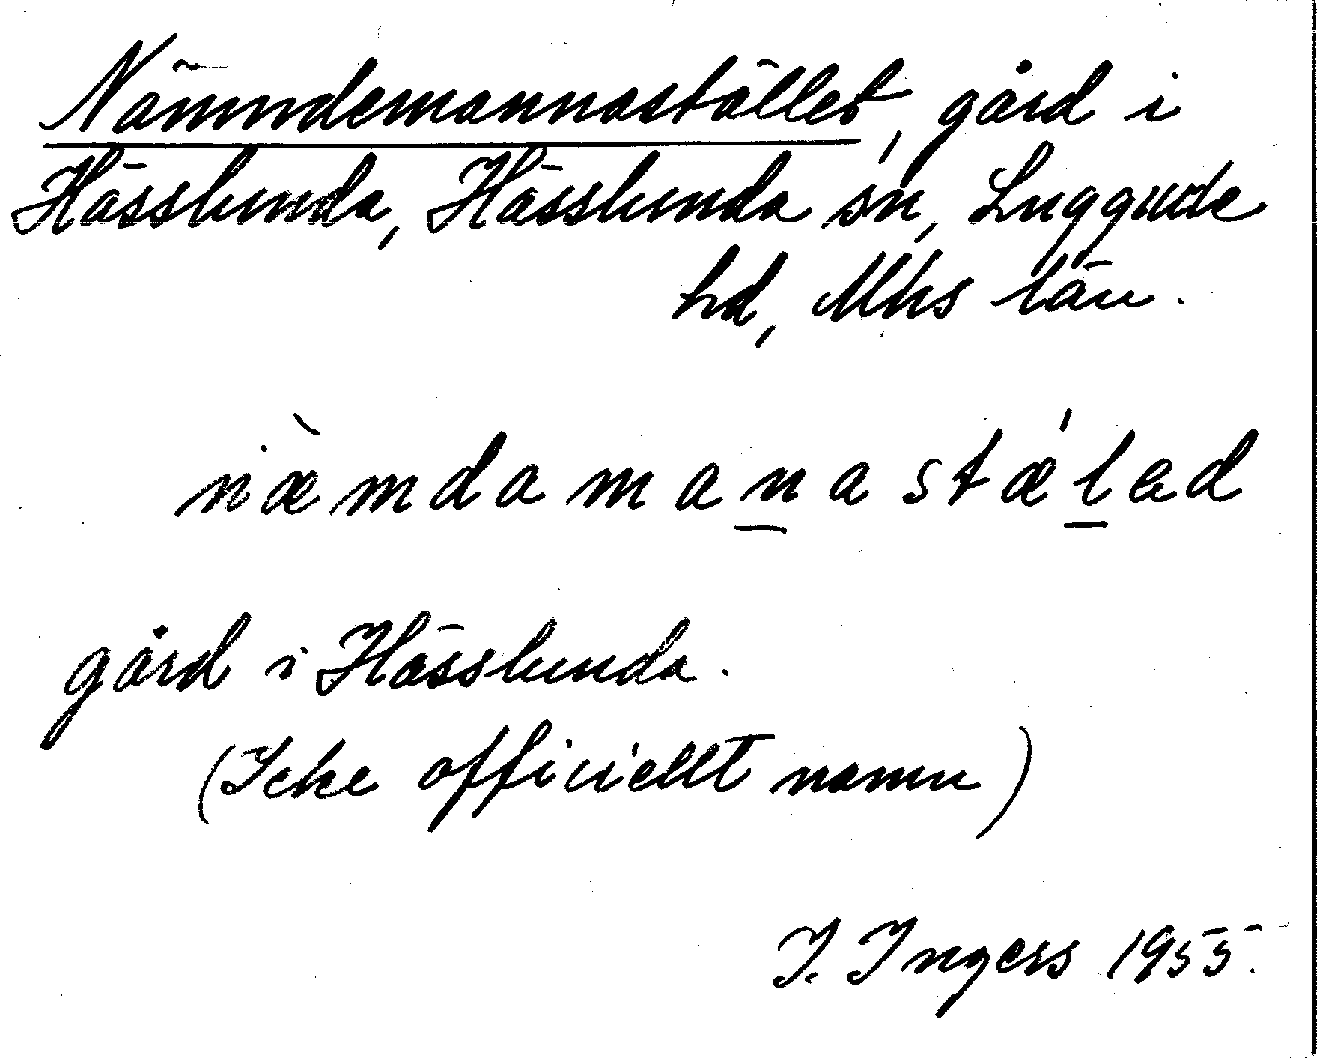 Nämndemannastället, gård i
Hässlunda, Hässlunda sn, Luggude
hd, Mhs län.
næ̀mdamana̠stǽl̠ad
gård i Hässlunda.
(Icke officiellt namn)
I. Ingers 1955.